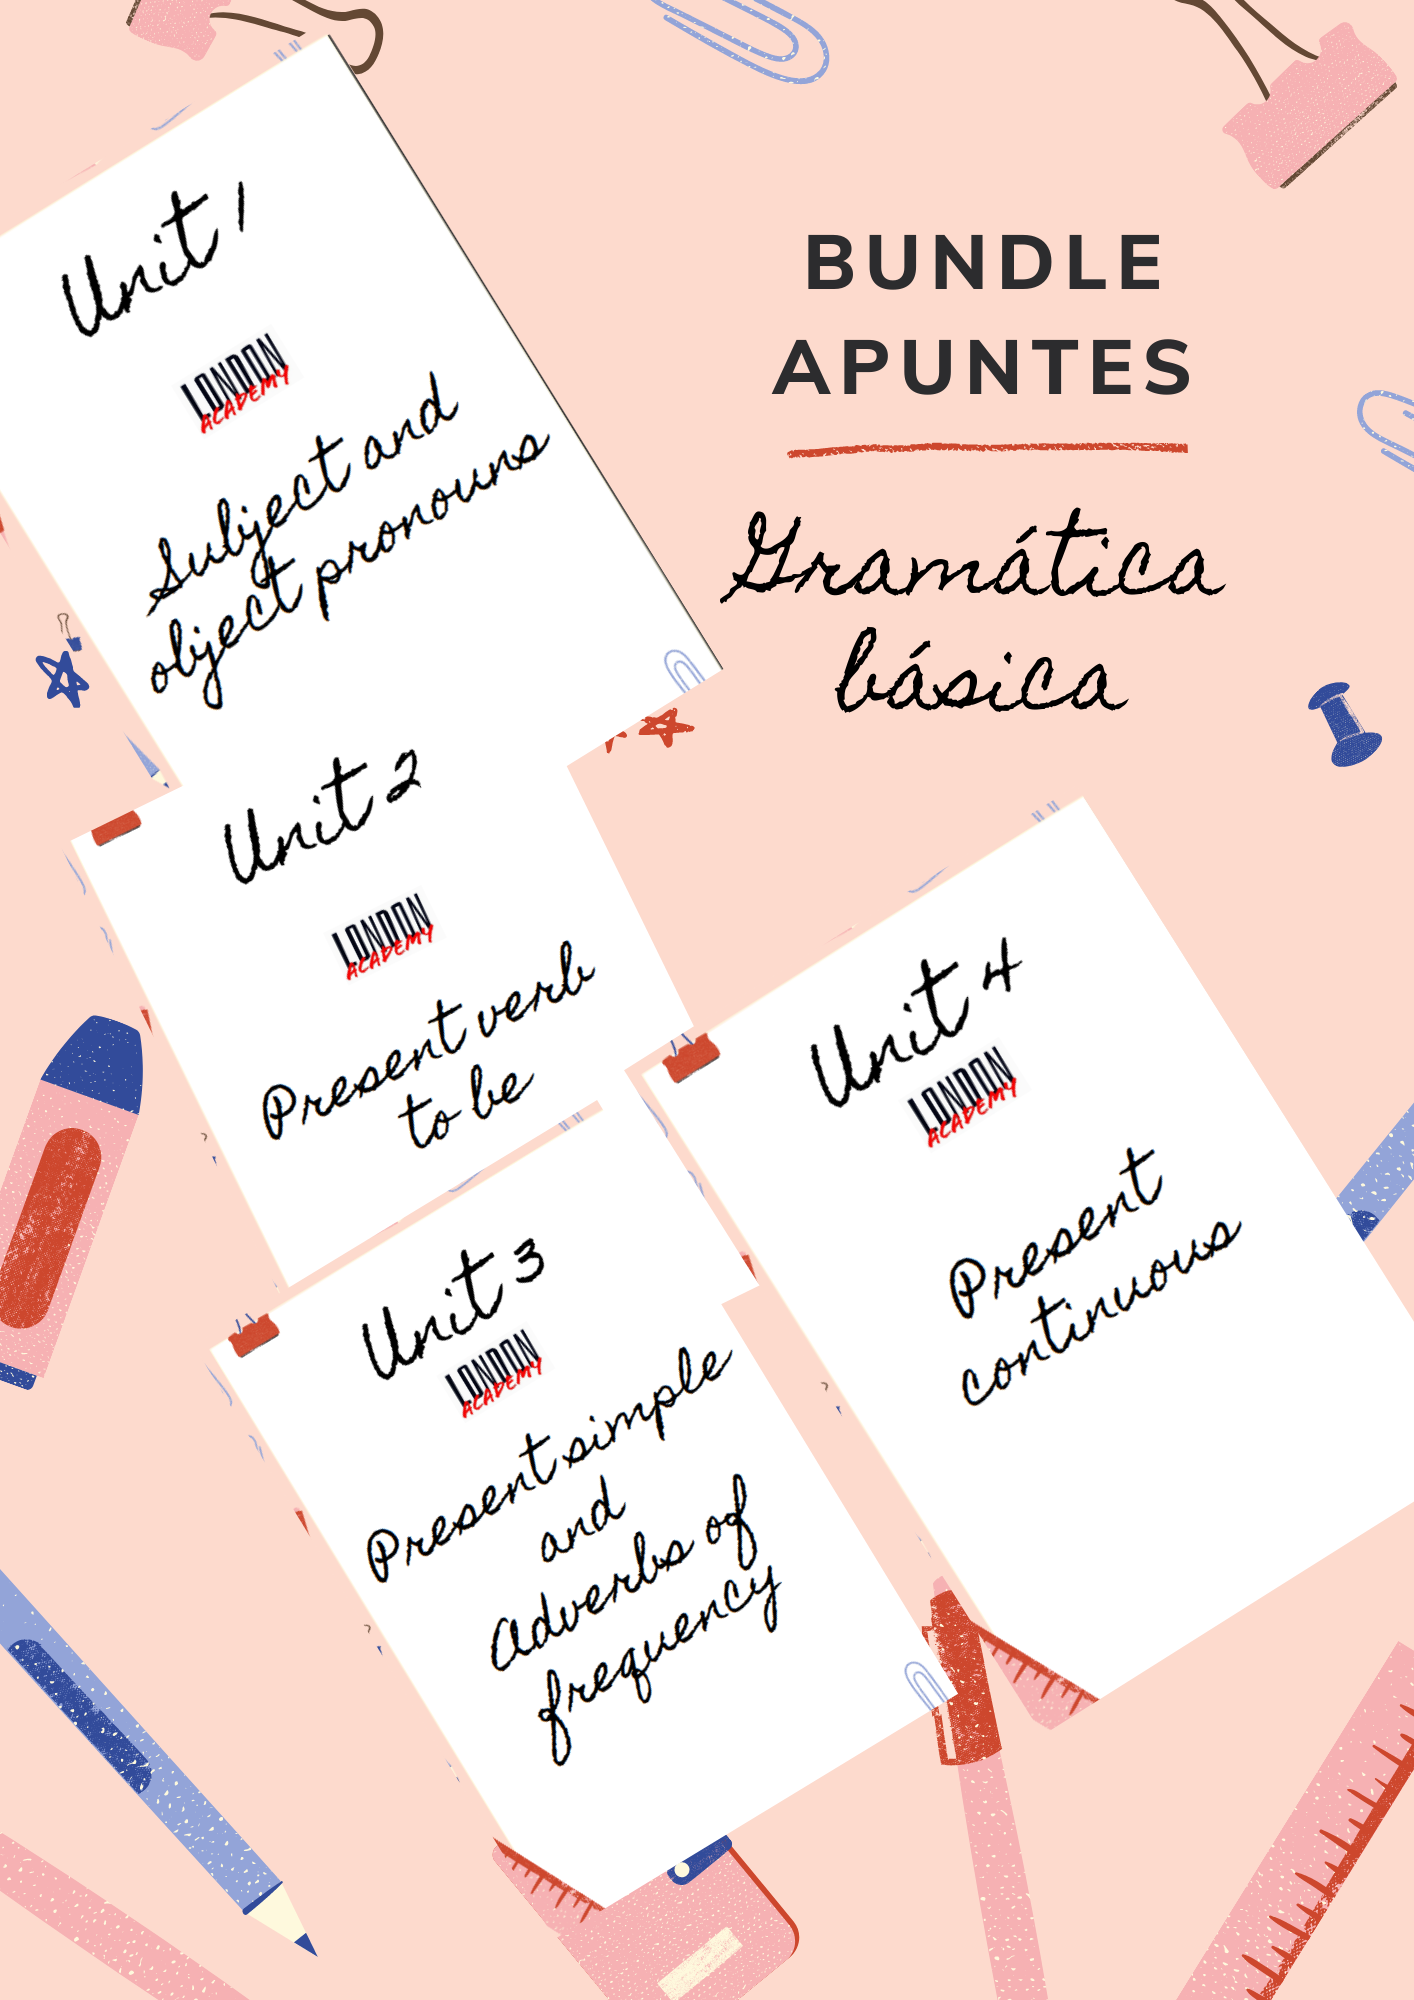 BUNDLE
APUNTES
Gramática
básica
Unit 1
LONDON
ACADEMY
Subject and
object pronouns
Unit 2
LONDON
ACADEMY
Present verb
to be
Unit 3
LONDON
ACADEMY
Present simple
and
Adverbs of
frequency
Unit 4
LONDON
ACADEMY
Present
continuous